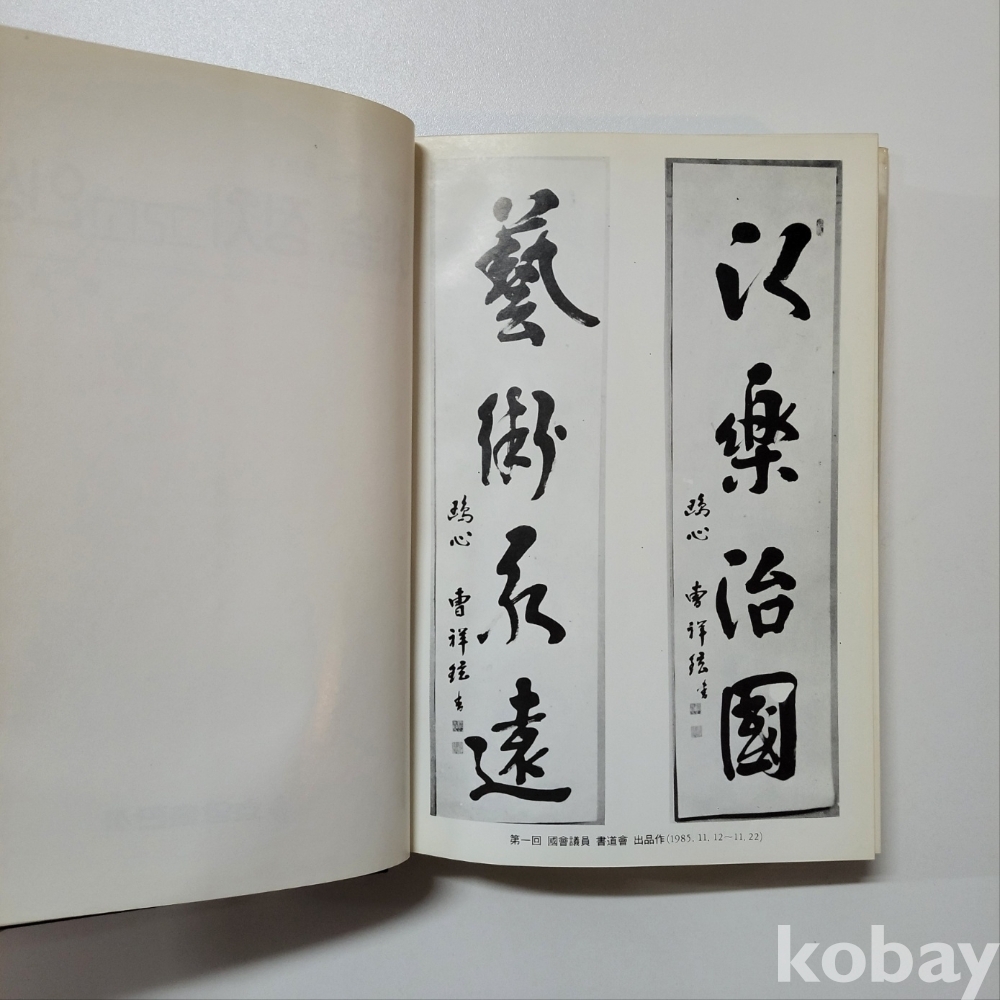 以樂治國
心 曹祥鉉 書
藝術永遠
心 曹祥鉉 書
第一回 國會議員 書道會 出品作(1985. 11. 12～11. 22)
kobay